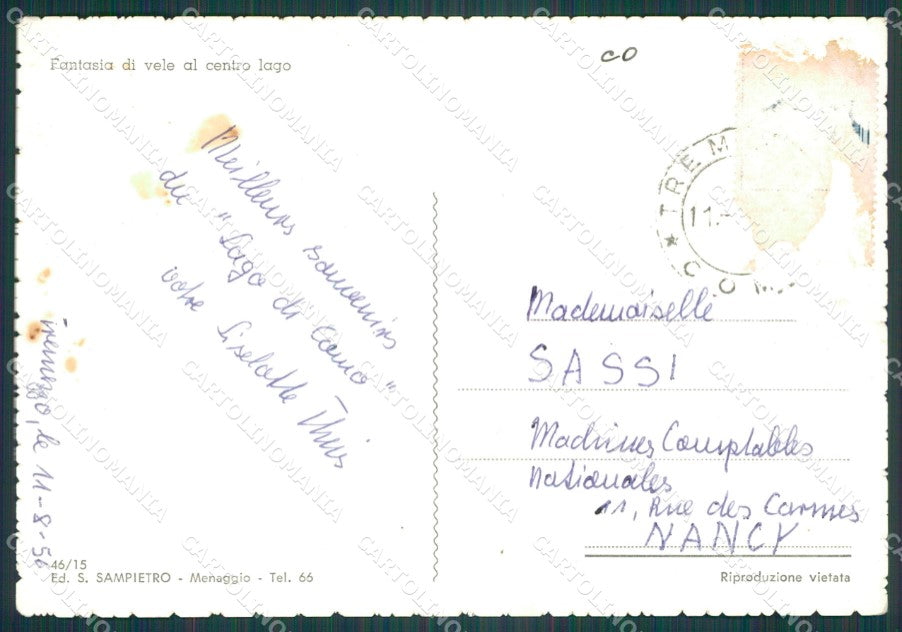 Fantasia di vele al centro lago
CO
TREM
11.-
CO M.
Meilleurs souvenirs
du "Lago di Como"
votre Liselotte
Mademoiselle
SASSI
Machines Comptables
Nationales
11, Rue des Carmes
NANCY
Tremezzo, le 11-8-56
46/15
Ed. S. SAMPIETRO - Menaggio - Tel. 66
Riproduzione vietata
CARTOLINOMANIA